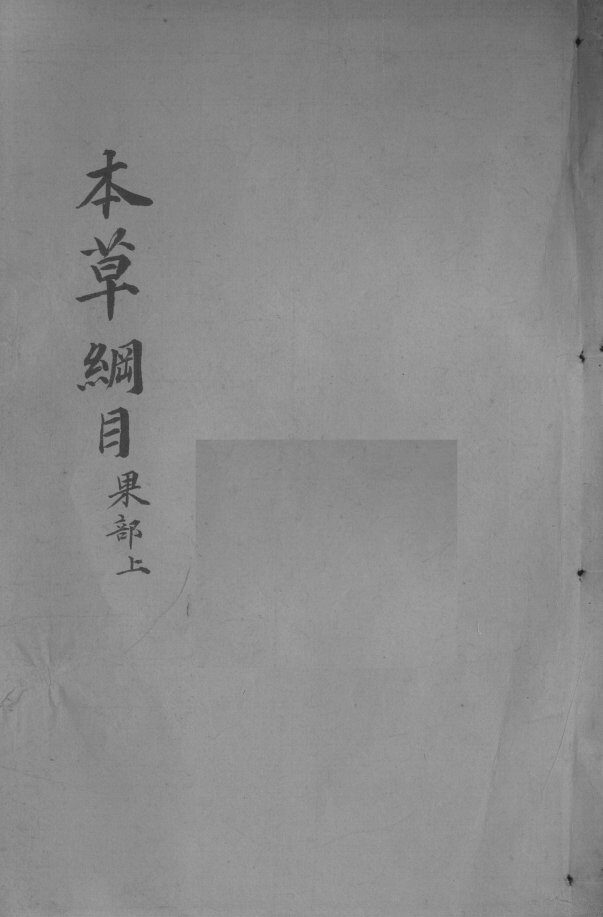 本草綱目果部上